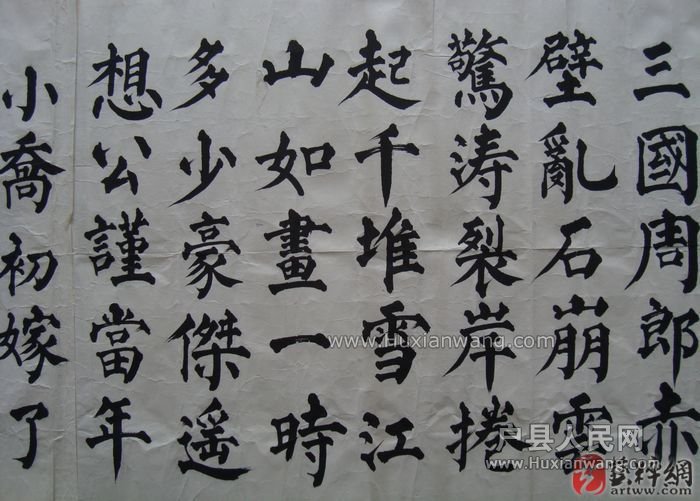 三國周郎赤
壁亂石崩雲
驚涛裂岸捲
起千堆雪江
山如畫一時
多少豪傑遥
想公謹當年
小喬初嫁了
www.Huxianwang.com
户县人民网
www.Huxianwang.com
艺粹網
artww.com